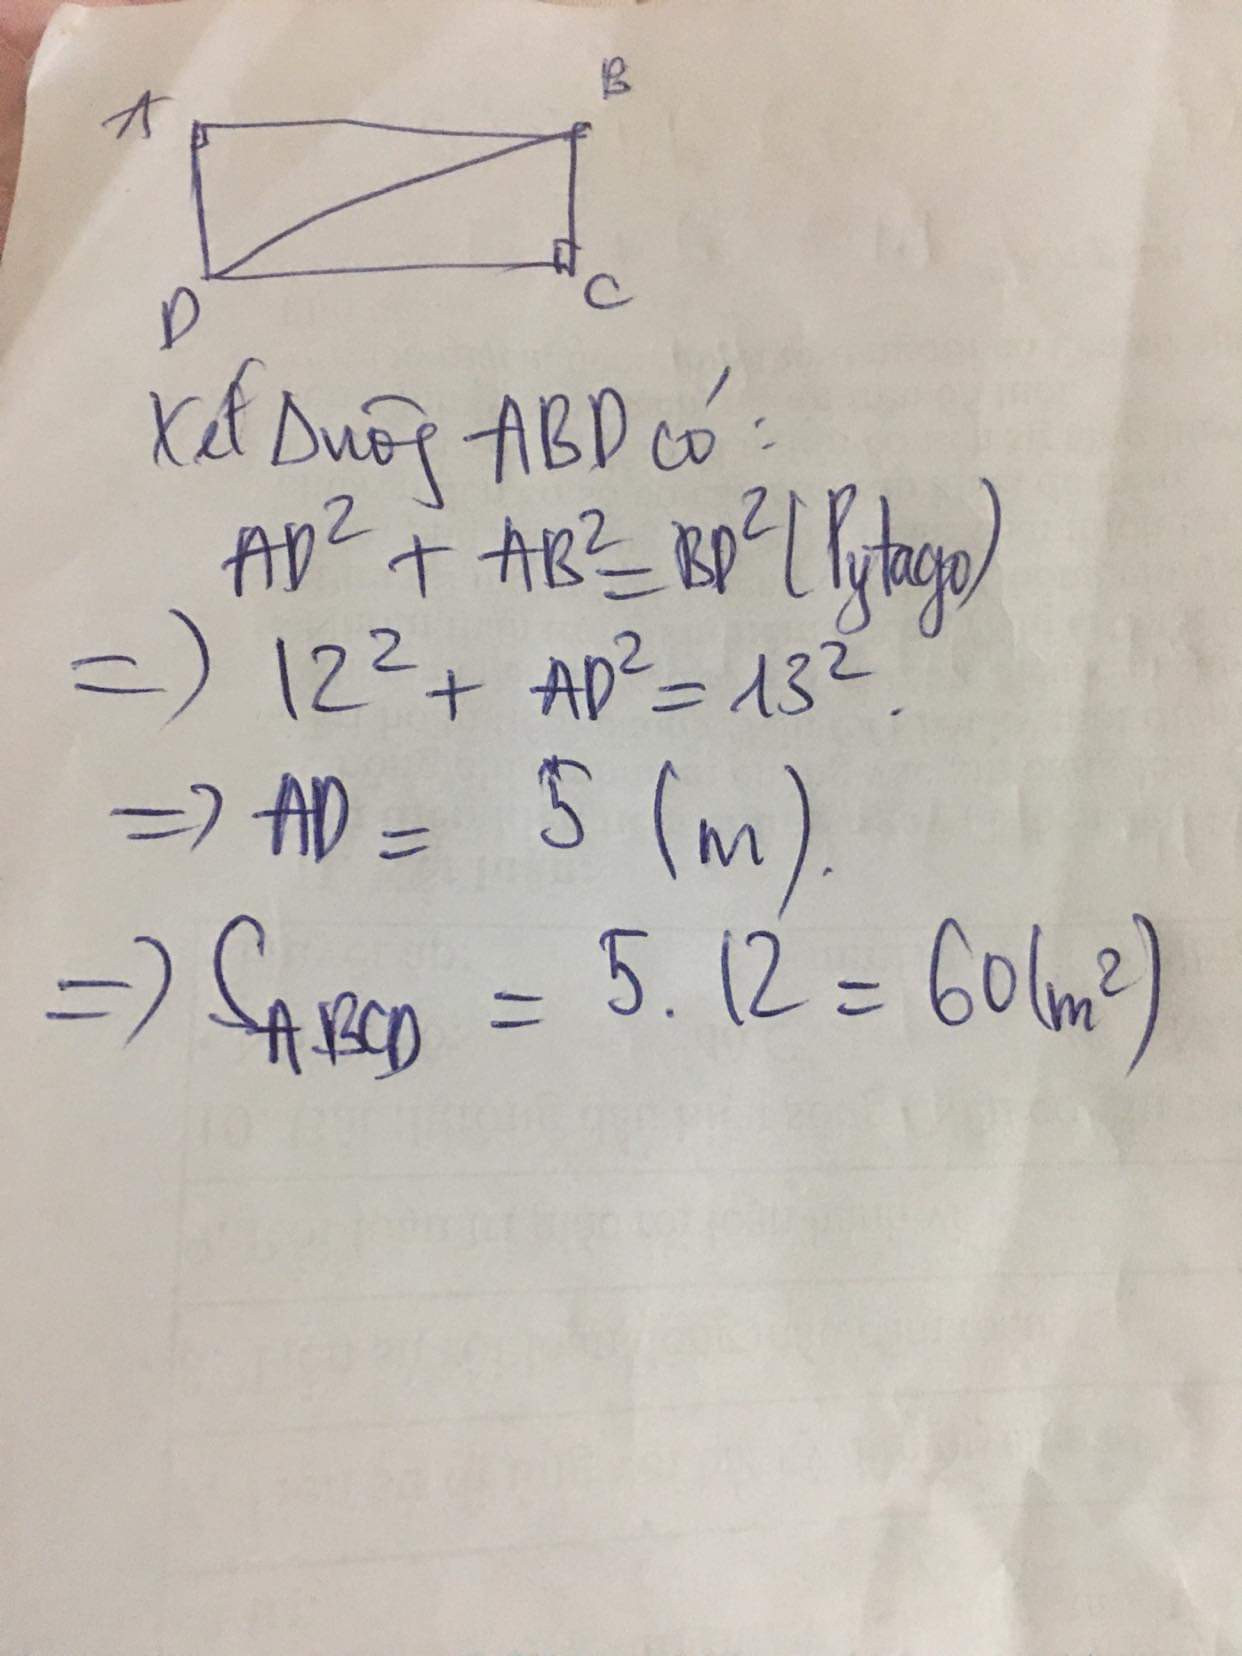 A
B
D
C
Xét Δvuông ABD có:
AD² + AB² = BD² (Pytago)
=> 12² + AD² = 13².
=> AD = 5 (m).
=> S_ABCD = 5.12 = 60(m²)